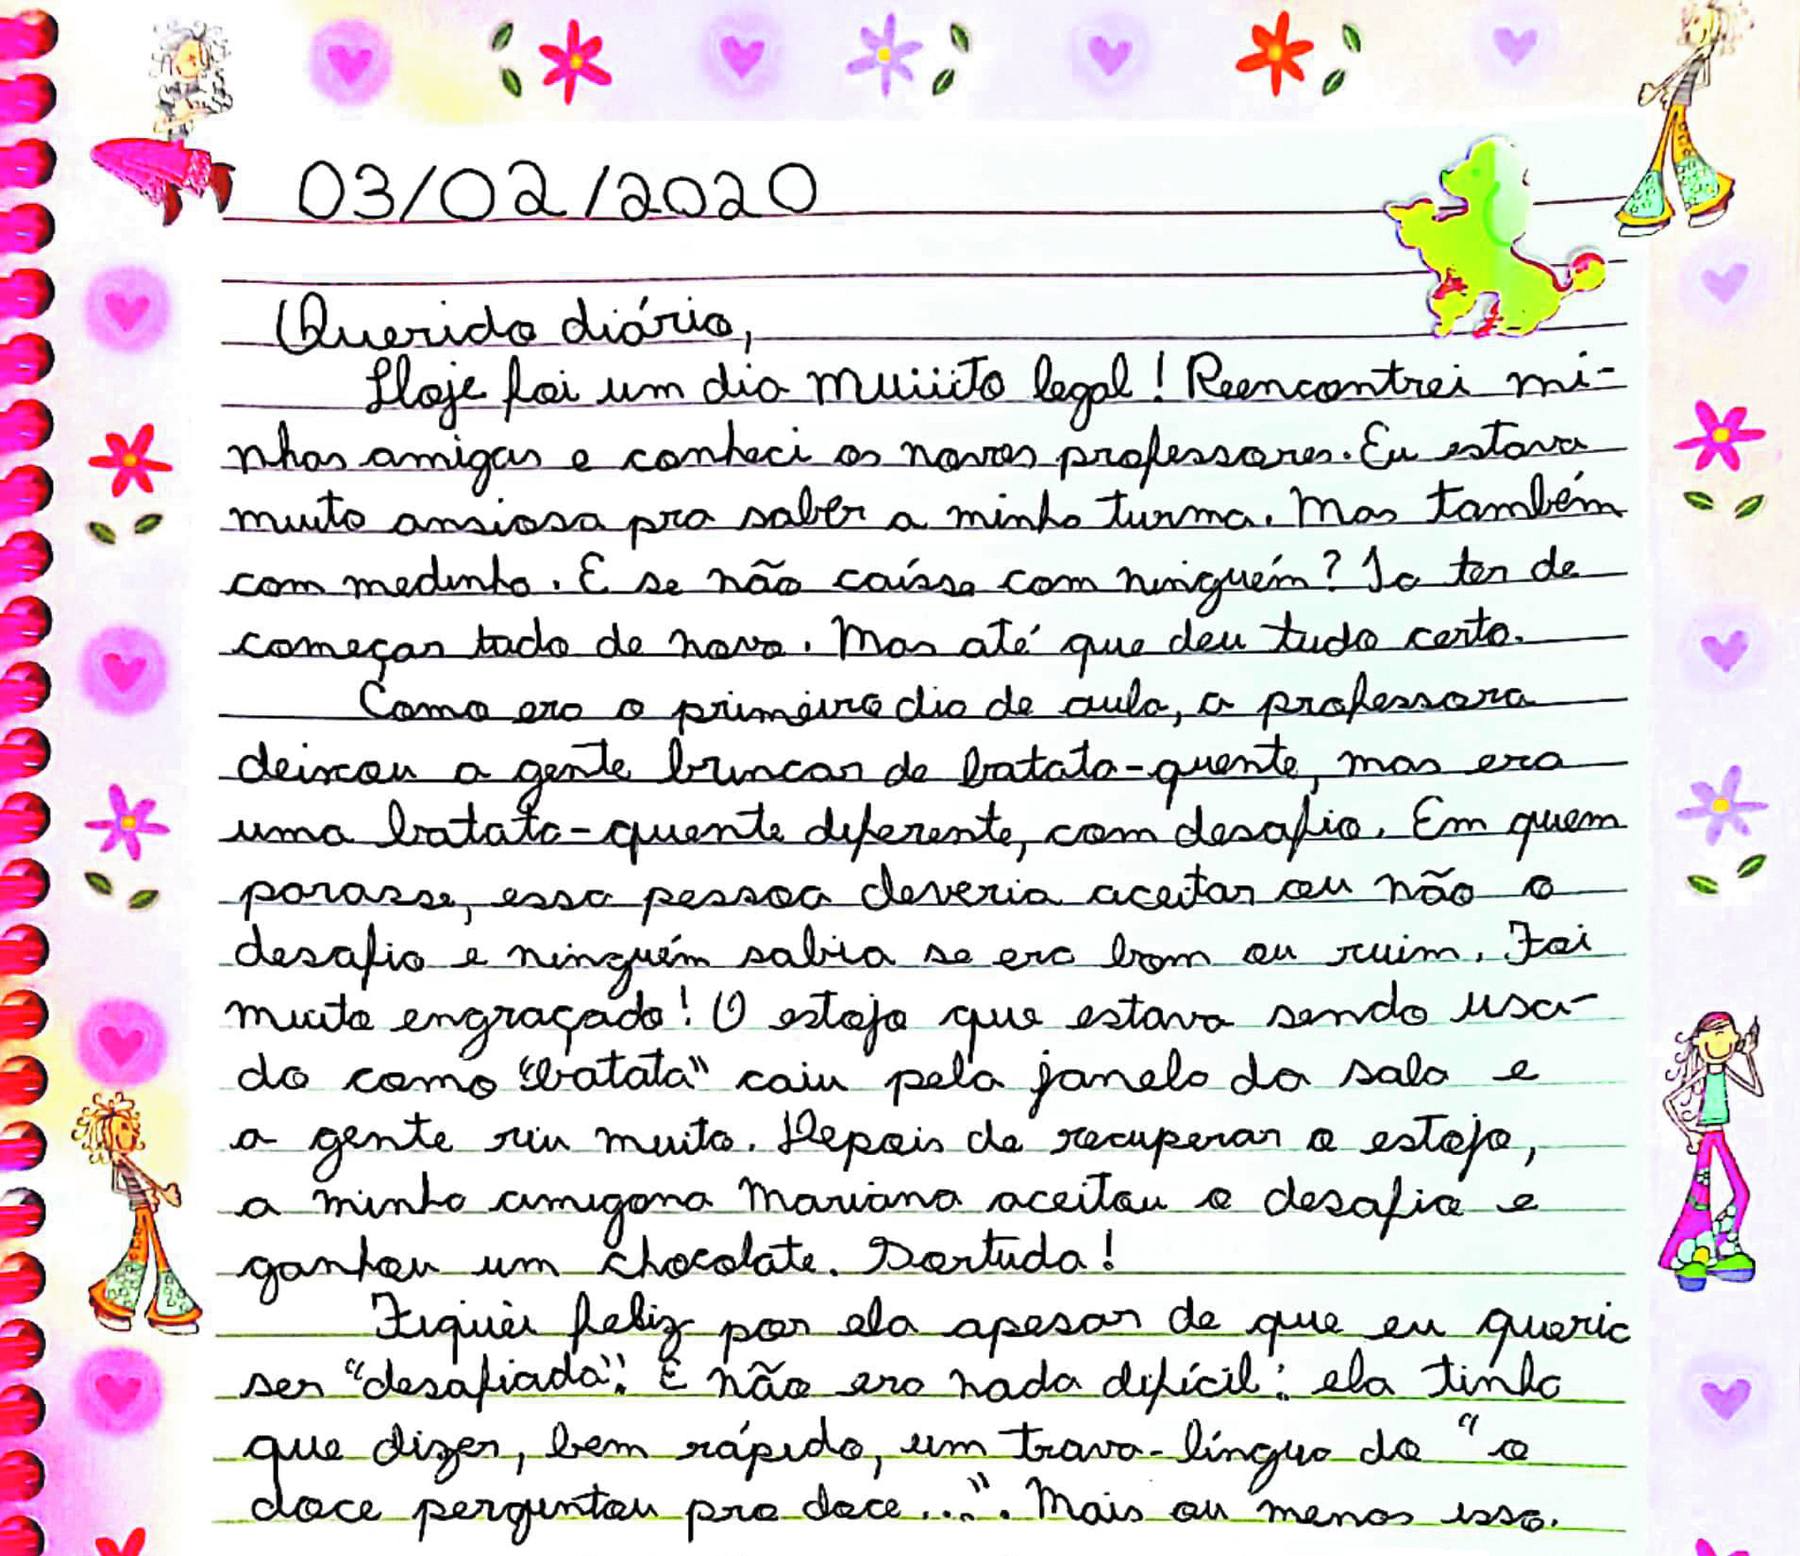 03/02/2020
Querido diário,
Hoje foi um dia muiiito legal! Reencontrei mi-
nhas amigas e conheci os novos professores. Eu estava
muito ansiosa pra saber a minha turma. Mas também
com medinho. E se não caísse com ninguém? Ia ter de
começar tudo de novo. Mas até que deu tudo certo.
Como era o primeiro dia de aula, a professora
deixou a gente brincar de batata-quente, mas era
uma batata-quente diferente, com desafio. Em quem
parasse, essa pessoa deveria aceitar ou não o
desafio e ninguém sabia se era bom ou ruim. Foi
muito engraçado! O estojo que estava sendo usa-
do como "batata" caiu pela janela da sala e
a gente riu muito. Depois de recuperar o estojo,
a minha amigona Mariana aceitou o desafio e
ganhou um chocolate. Sortuda!
Fiquei feliz por ela apesar de que eu queria
ser "desafiada". E não era nada difícil: ela tinha
que dizer, bem rápido, um trava-língua do "o
doce perguntou pro doce...". Mais ou menos isso.